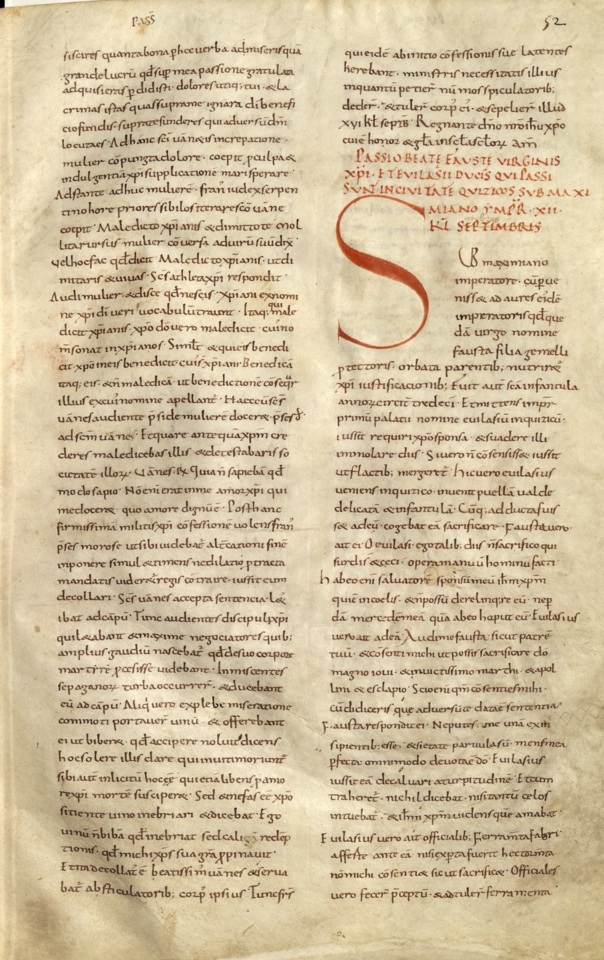 PASS̄
52
si scires quanta bona p̱ hec uerba admiseris quā
grande lucrū qđ sup mea passione gratulata
adquisieris p̱didisti · dolores utiq; tui · & la
crimas istas quas sup me ignara di benefi
cio fundis · sup te funderes qui aduersū dm̄
locuta es · Ad hanc sc̄i uanes increpatione
mulier cōpuncta dolore · coepit p̱ culpa &
indulgentia xp̄i supplicatione
Adstante adhuc muliere · frañ iudex serpen
tino hore priores sibilos iterares cōuane
coepit · Maledicto xp̄ianis & dimitto te · Mol
litarursus mulier cōuersa adui rū suū dix̄
Vel hoc fac qđ dicit · Maledicto xp̄ianis · ut di
mitaris & uiuas · Sc̄s athleta xp̄i respondit ·
Audi mulier · & disce qđ nescis · xp̄iani ex nomi
ne xp̄i di ueri uocabulū traunt · Itaq; qui male
dicit xp̄ianis · xp̄o dō uero maledicit · cui nō
m̄ sonat in xp̄ianos · Similit̄ & qui eis benedi
cit · xp̄o m̄ eis benedicit cuis xp̄iani · Benedica
itaq; eis · & n̄ maledicā · ut benedictione cōseq̄r
illius ex cui nomine apellant̄ ·
uanes audiente p̱side muliere docere ·
ad sc̄m uane · Et quare antequā xpm̄ cre
deres maledicebas illis & detestabaris so
cietate illorū · Vanes · R̄ · Quia n̄ sapiebā qđ
modo sapio · Nō eni erat in me amor xp̄i qui
me docere · quo amore dignū ē · Post hanc
firmissima militis xp̄i cōfessione uolens frañ
p̱ses morose ut sibi uidebat̄ finē
inponere simul & timens ne dilatio p̱tracta
mandatis uideret̄ regis cōtraire · iussit eum
decollari · Sc̄s uanes accepta sentencia · l&
ibat ad capū · Tunc audientes discipuli xp̄i
qui lęabant & maxime negociatores quib;
amplius gaudiū nascebat̄ qđ de suo corpore
martyre p̱cesisse uidebant · Inmiscentes
se paganorū turba occurrer̄ · & ducebant
eū ad capū · Aliq̇ uero explebe miseratione
commoti portauer̄ uinū · & offerebant
ei ut biber& · qđ accipere noluit dicens
hoc solere illis dare qui inuiti moriunt̄
sibi aut̄ inlicitū hoc cē qui etiā libens p̱ amo
re xp̄i morte suscipere · Sed & nefas cē xp̄o
sitiente uino inebriari · & dicebat · Ego
uinū n̄ bibā qđ inebriat sed caligā redēp
tionis · qđ mihi xp̄s sua gra p̱pinauit ·
Et ita decollat̄ ē beatissim̄ uanes & serua
bat̄ abspiculatorib; corp̄ ipsius · Tunc frs̄
qui eidē ab initio cōfessionis sue latentes
herebant · ministris necessitatis illius
in quantū petier̄ nūmos spiculatorib;
deder̄ · & tuler̄ corp̄ ei · & sepelier̄ illud
xvi kl̄ septēb̄ · Regnante dn̄o nr̄o ihū xp̄o
cui ē honor & gl̄a in sc̄la sc̄lorū am̄
PASSIO BEATE FAUSTE VIRGINIS
XP̄I · ET EVILASII DUCIS QUI PASSI
SUNT IN CIVITATE QUIZICOS SUB MAXI
MIANO IMPR̄ · XII ·
KL̄ SEPTIMBRIS
SUB maximiano
imperatore · cū p̱ue
niss& ad aures eidē
imperatoris qđ que
dā uirgo nomine
fausta filia gemelli
p̱tectoris · orbata parentib; nutrir&
xp̄i iustificationib; · Erat aut̄ sēa infantula
annorū circit̄ tredeci · Et mittens imp̄r̄
primū palatii nomine euilasiū in quizicū ·
iussit requiri xp̄o sponsa · & suadere illi
immolare diis · Si uero n̄ cōsensiss& iussit
ut fluctib; merger&̄ · Hic uero euilasius
ueniens in quizico · inuenit puellā ualde
delicatā & infantulā · Cūq; adducta fuis
s& ad eū · cogebat eā sacrificare · Fausta uero
ait ei · O euilasi · ego talib; diis n̄ sacrifico qui
surdi s̄ & ceci · opera manuū hominū facti
Habeo eni saluatore sponsū meū ihm̄ xpm̄
qui ē in coelis · & n̄ possū derelinq̄re eū · nep̱
dā mercedē meā quā abeo apud eū · Euilasius
uero ait ad eā · Audi mo fausta sicut patrē
tuū · & cōsenti michi ut possis sacrificare dō
magno ioui · & inuictissimo marthi · & apol
lini & esclapio · Scio eni qm̄ cōsenties mihi ·
cū didiceris que aduersū te datae sententia ·
Fausta respondit ei · Ne putes me unā ex in
sipientib; esse · & si etate paruula sū · mens mea
p̱fecta omnimodo deuota ē dō · Euilasius
iussit eā decaluari ad turpitudinē · Et cum
traheret̄ · nichil dicebat · nisi tantū celos
intuebat̄ · & ihm̄ xpm̄ uidens que amabat ·
Euilasius uero ait officialib; · Ferramta fabri
afferte ante eā nisi extafuerit hec tormta
nō michi cōsentiē sic ut sacrific& · Officiales
uero fecer̄ p̱ceptū · & adtuler̄ ferramenta ·